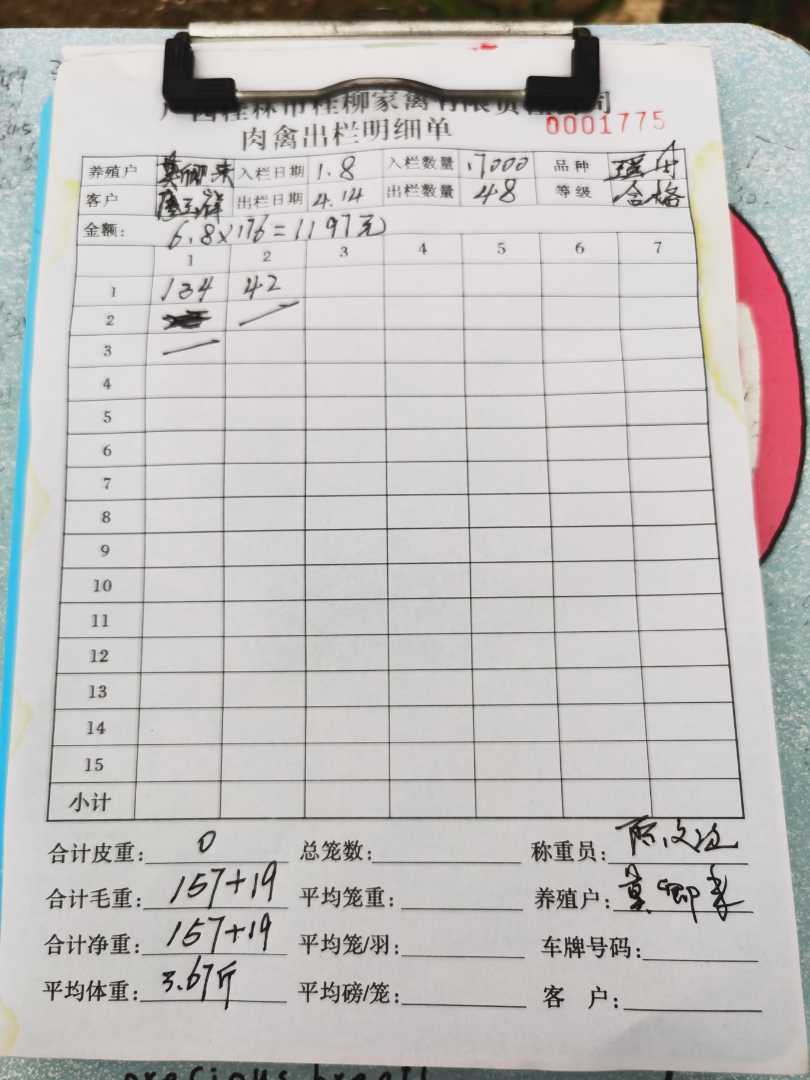 广西桂林市桂柳家禽有限责任公司
肉禽出栏明细单
0001775
养殖户 莫卿来 入栏日期 1.8 入栏数量 17000 品种 瑶丹
客户 出栏日期 4.14 出栏数量 48 等级 合格
金额: 6.8×176=1197元
1 2 3 4 5 6 7
1 134 42
2
3
4
5
6
7
8
9
10
11
12
13
14
15
小计
合计皮重: 0 总笼数: 称重员:
合计毛重: 157+19 平均笼重: 养殖户: 莫卿来
合计净重: 157+19 平均笼/羽: 车牌号码:
平均体重: 3.67斤 平均磅/笼: 客 户:
precious